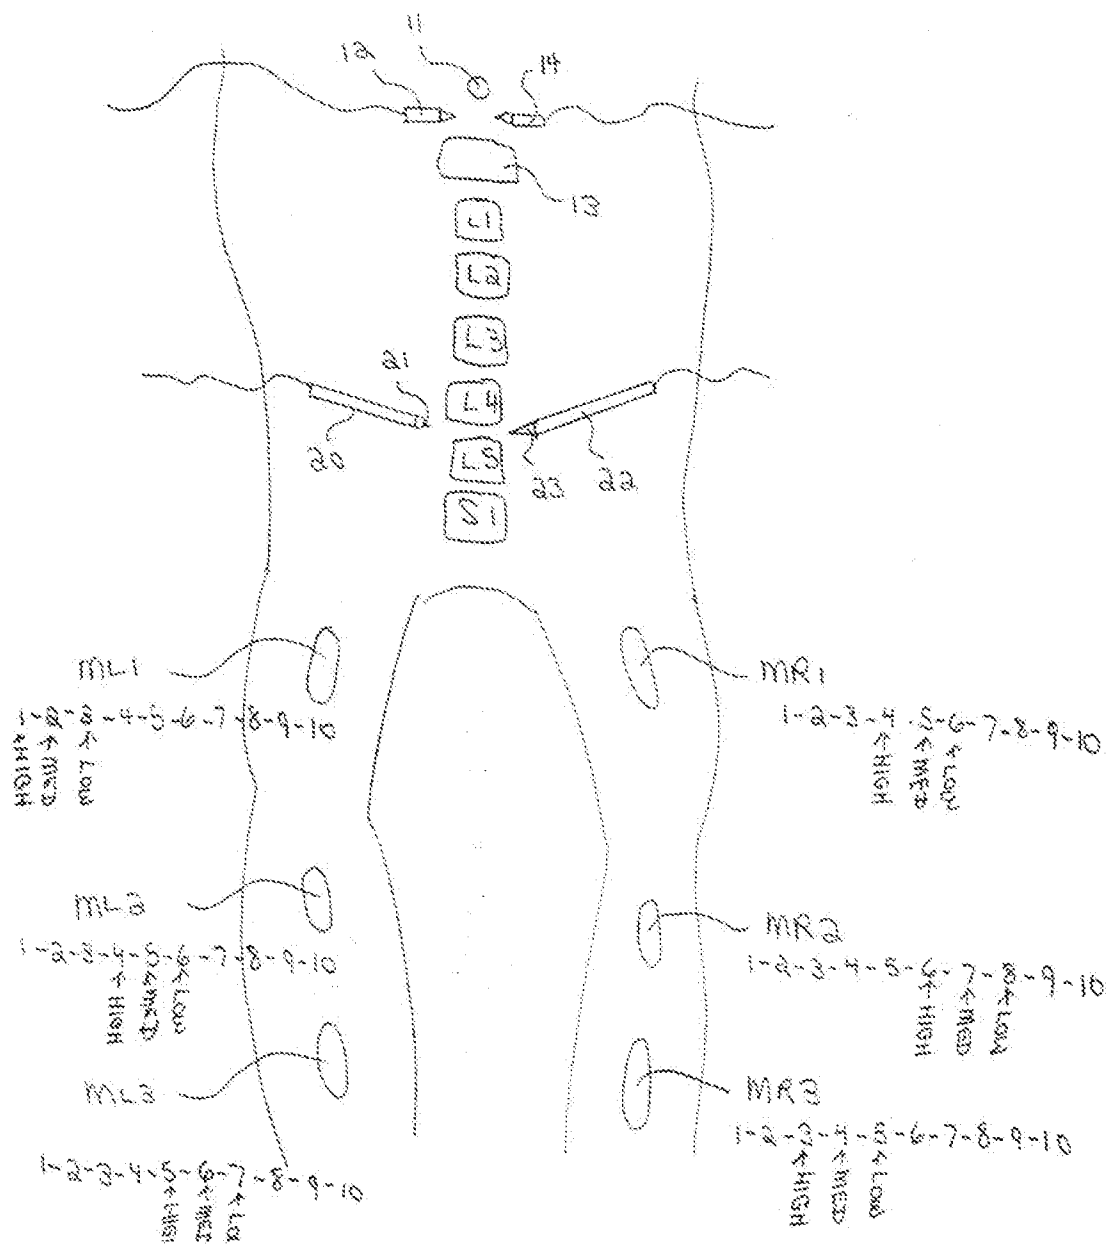 11
12
14
13
L1
L2
L3
21
L4
20
L5
23
22
S1
ML1
MR1
1-2-3-4-5-6-7-8-9-10
HIGH MED LOW
1-2-3-4-5-6-7-8-9-10
HIGH MED LOW
ML2
MR2
1-2-3-4-5-6-7-8-9-10
HIGH MED LOW
1-2-3-4-5-6-7-8-9-10
HIGH MED LOW
ML3
MR3
1-2-3-4-5-6-7-8-9-10
HIGH MED LOW
1-2-3-4-5-6-7-8-9-10
HIGH MED LO